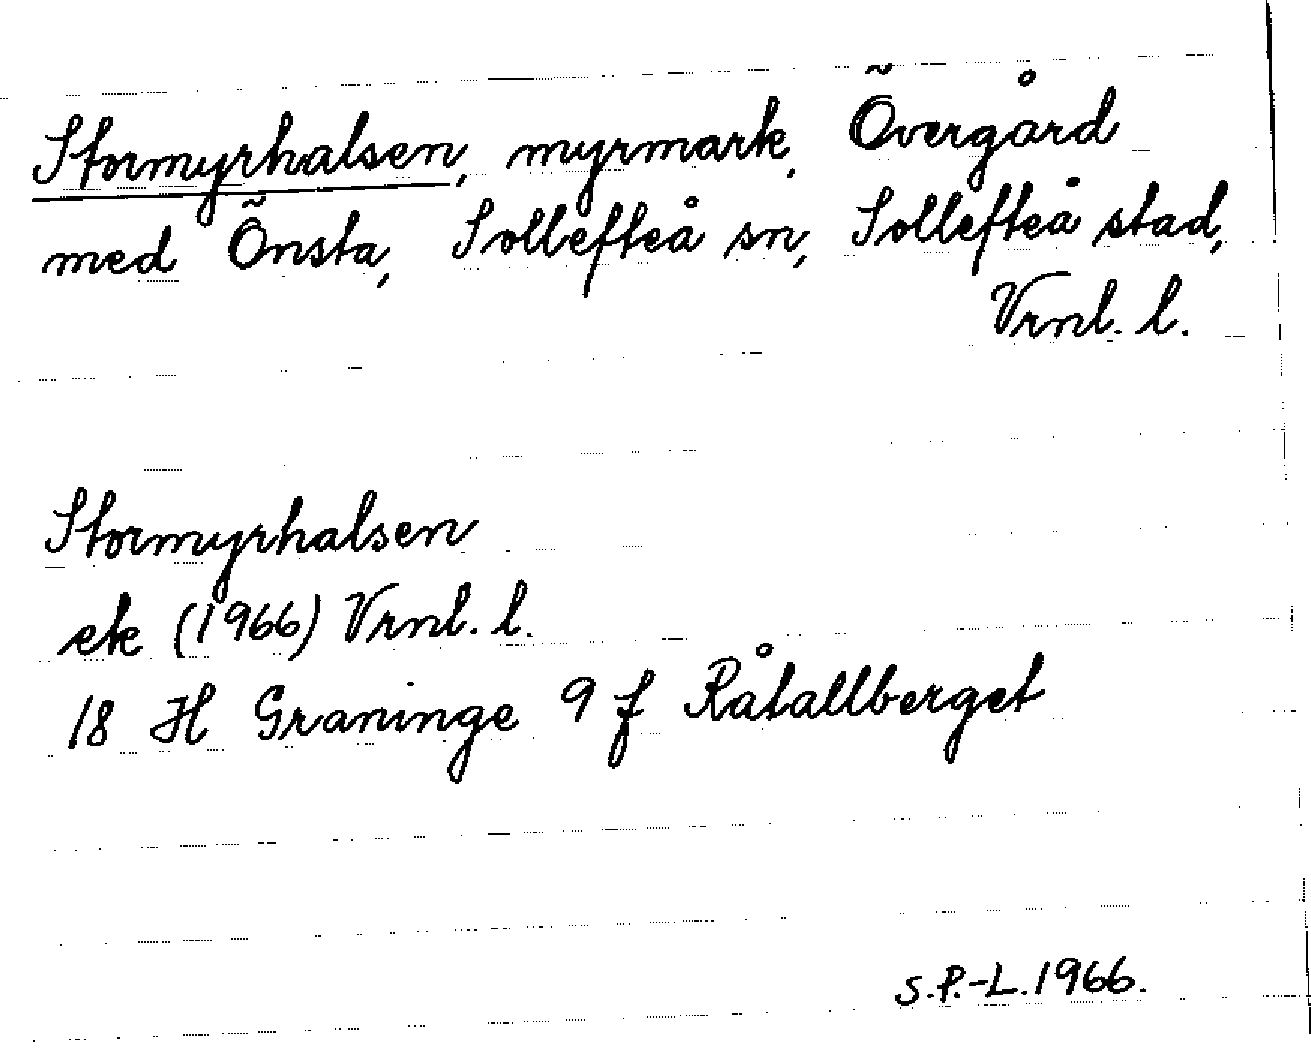 Stormyrhalsen, myrmark, Övergård
med Önsta, Sollefteå sn, Sollefteå stad,
Vrnl. l.
Stormyrhalsen
ek (1966) Vrnl. l.
18 H Graninge 9 f Råtallberget
S.P.-L. 1966.